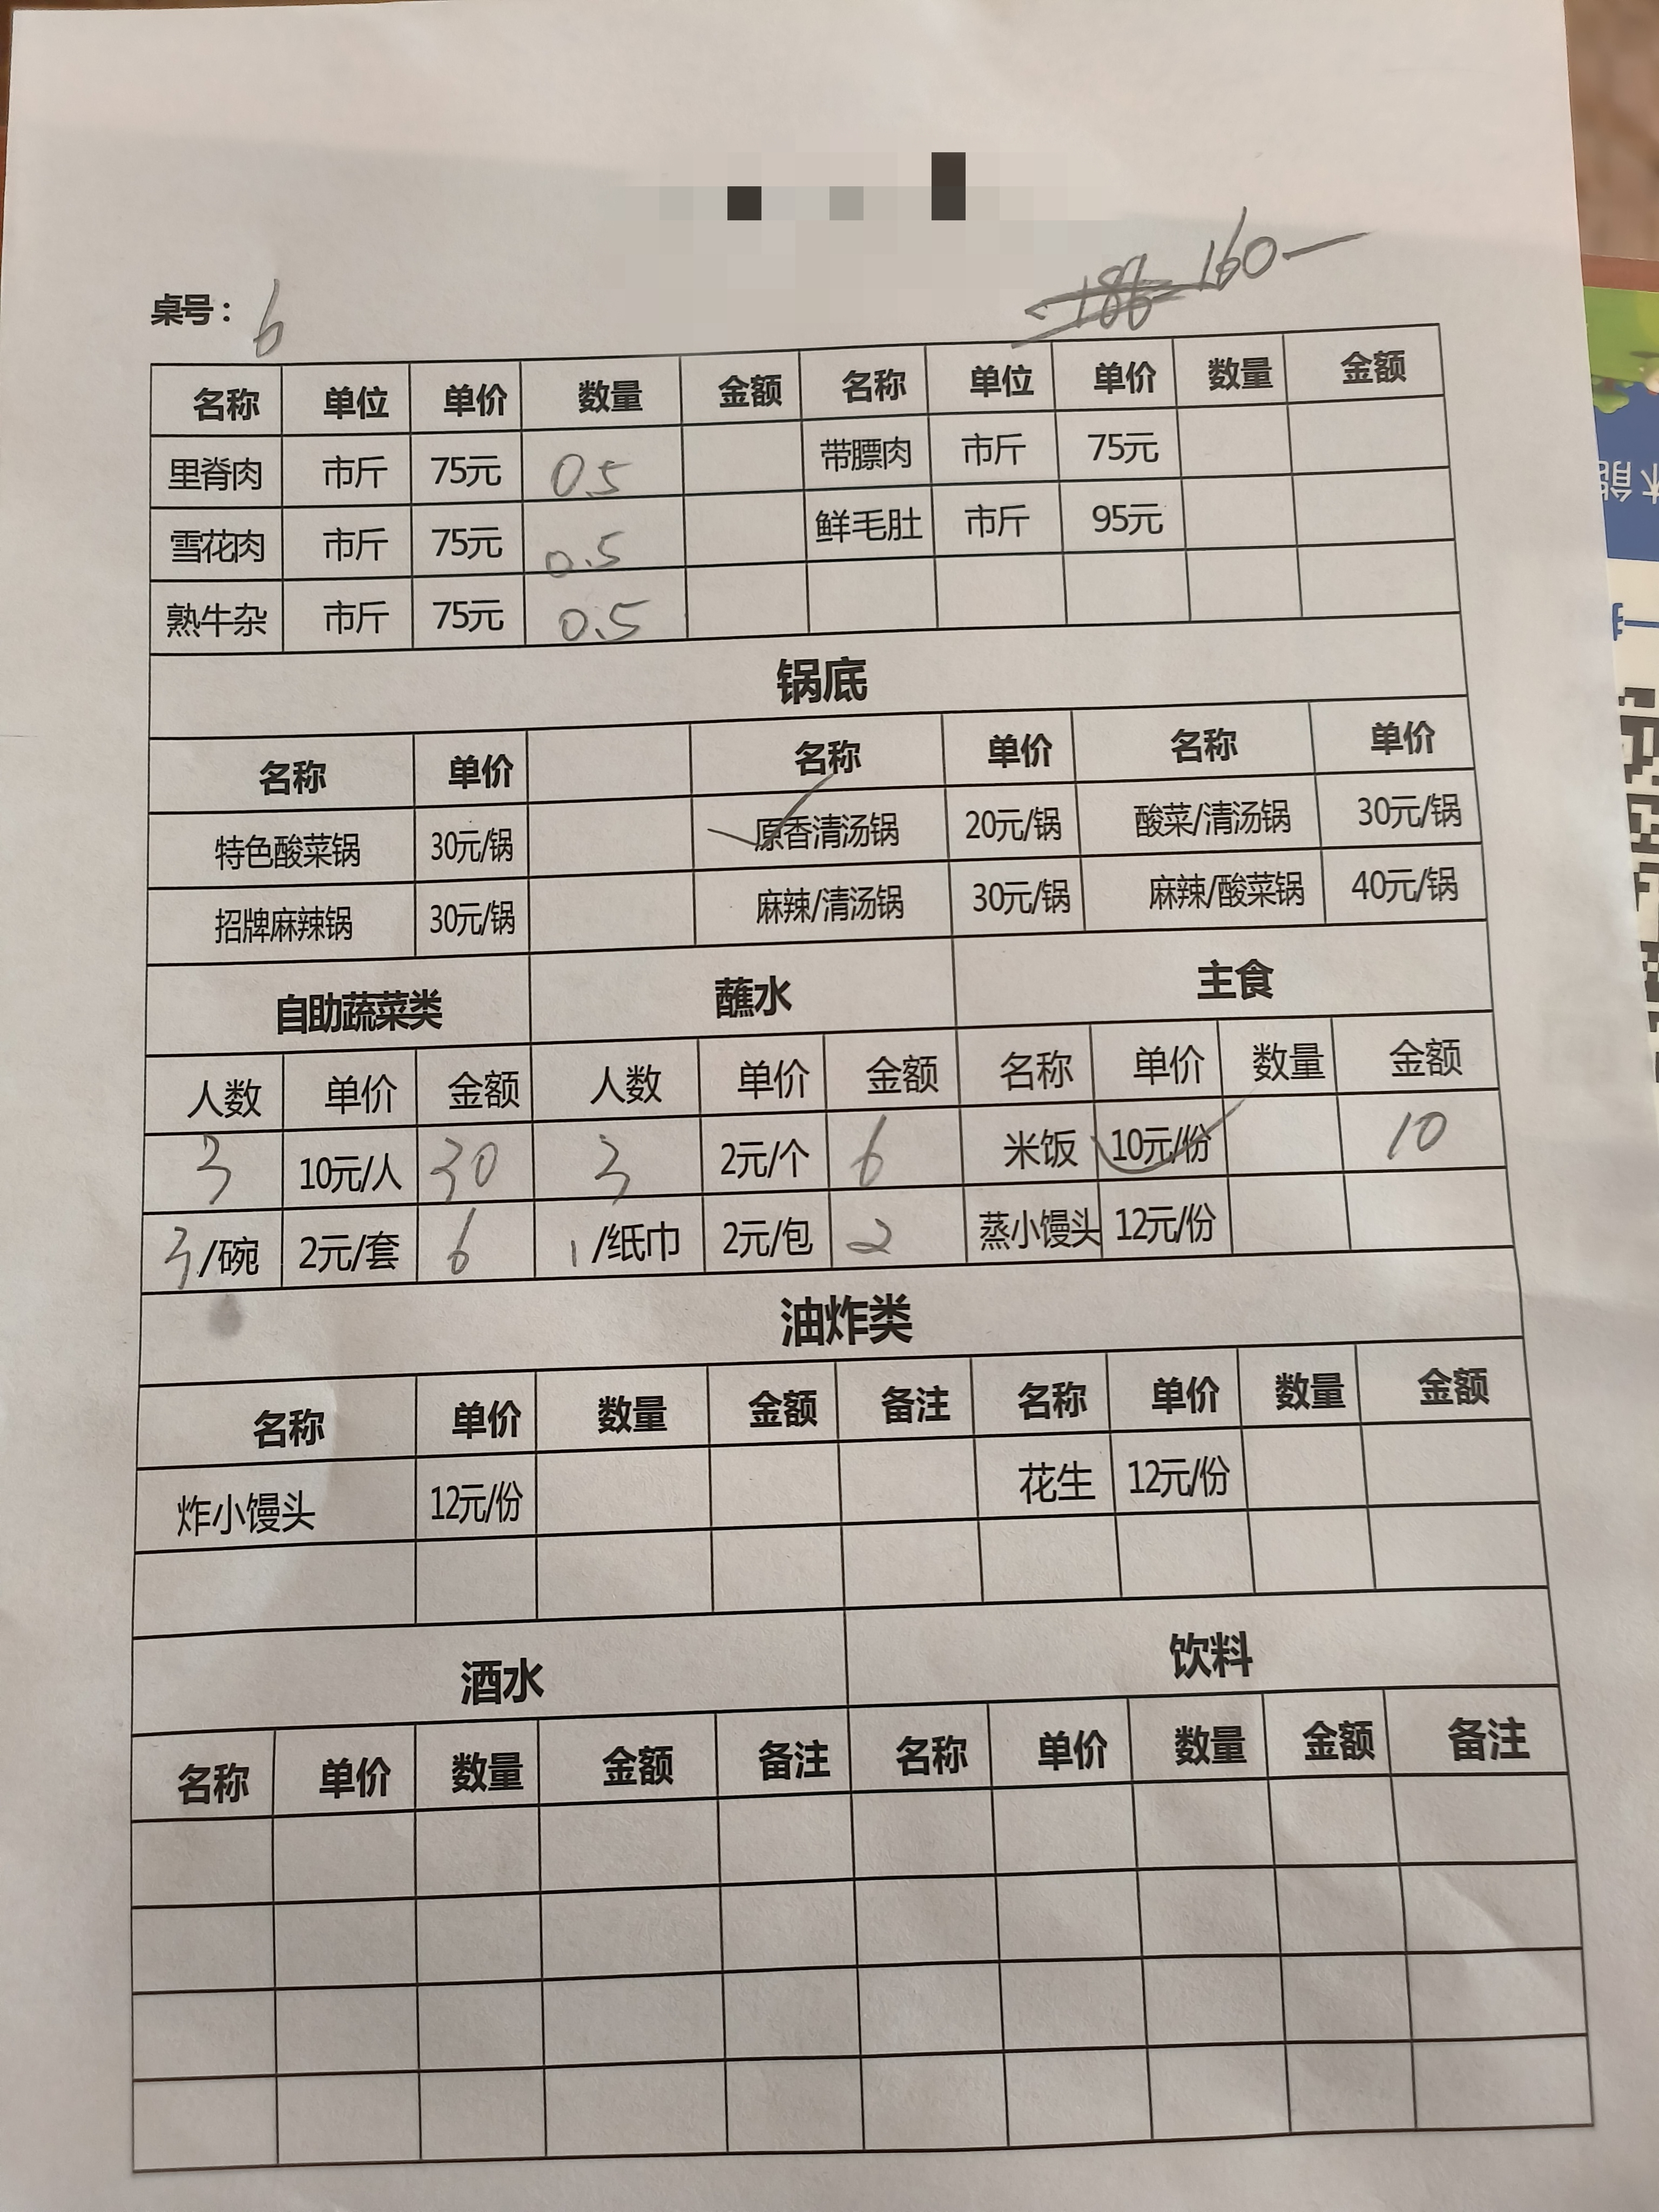 186 160—
桌号： 6
名称 单位 单价 数量 金额 名称 单位 单价 数量 金额
里脊肉 市斤 75元 0.5 带膘肉 市斤 75元
雪花肉 市斤 75元 0.5 鲜毛肚 市斤 95元
熟牛杂 市斤 75元 0.5
锅底
名称 单价 名称 单价 名称 单价
特色酸菜锅 30元/锅 原香清汤锅 20元/锅 酸菜/清汤锅 30元/锅
招牌麻辣锅 30元/锅 麻辣/清汤锅 30元/锅 麻辣/酸菜锅 40元/锅
自助蔬菜类 蘸水 主食
人数 单价 金额 人数 单价 金额 名称 单价 数量 金额
3 10元/人 30 3 2元/个 6 米饭 10元/份 10
3/碗 2元/套 6 1/纸巾 2元/包 2 蒸小馒头 12元/份
油炸类
名称 单价 数量 金额 备注 名称 单价 数量 金额
炸小馒头 12元/份 花生 12元/份
酒水 饮料
名称 单价 数量 金额 备注 名称 单价 数量 金额 备注